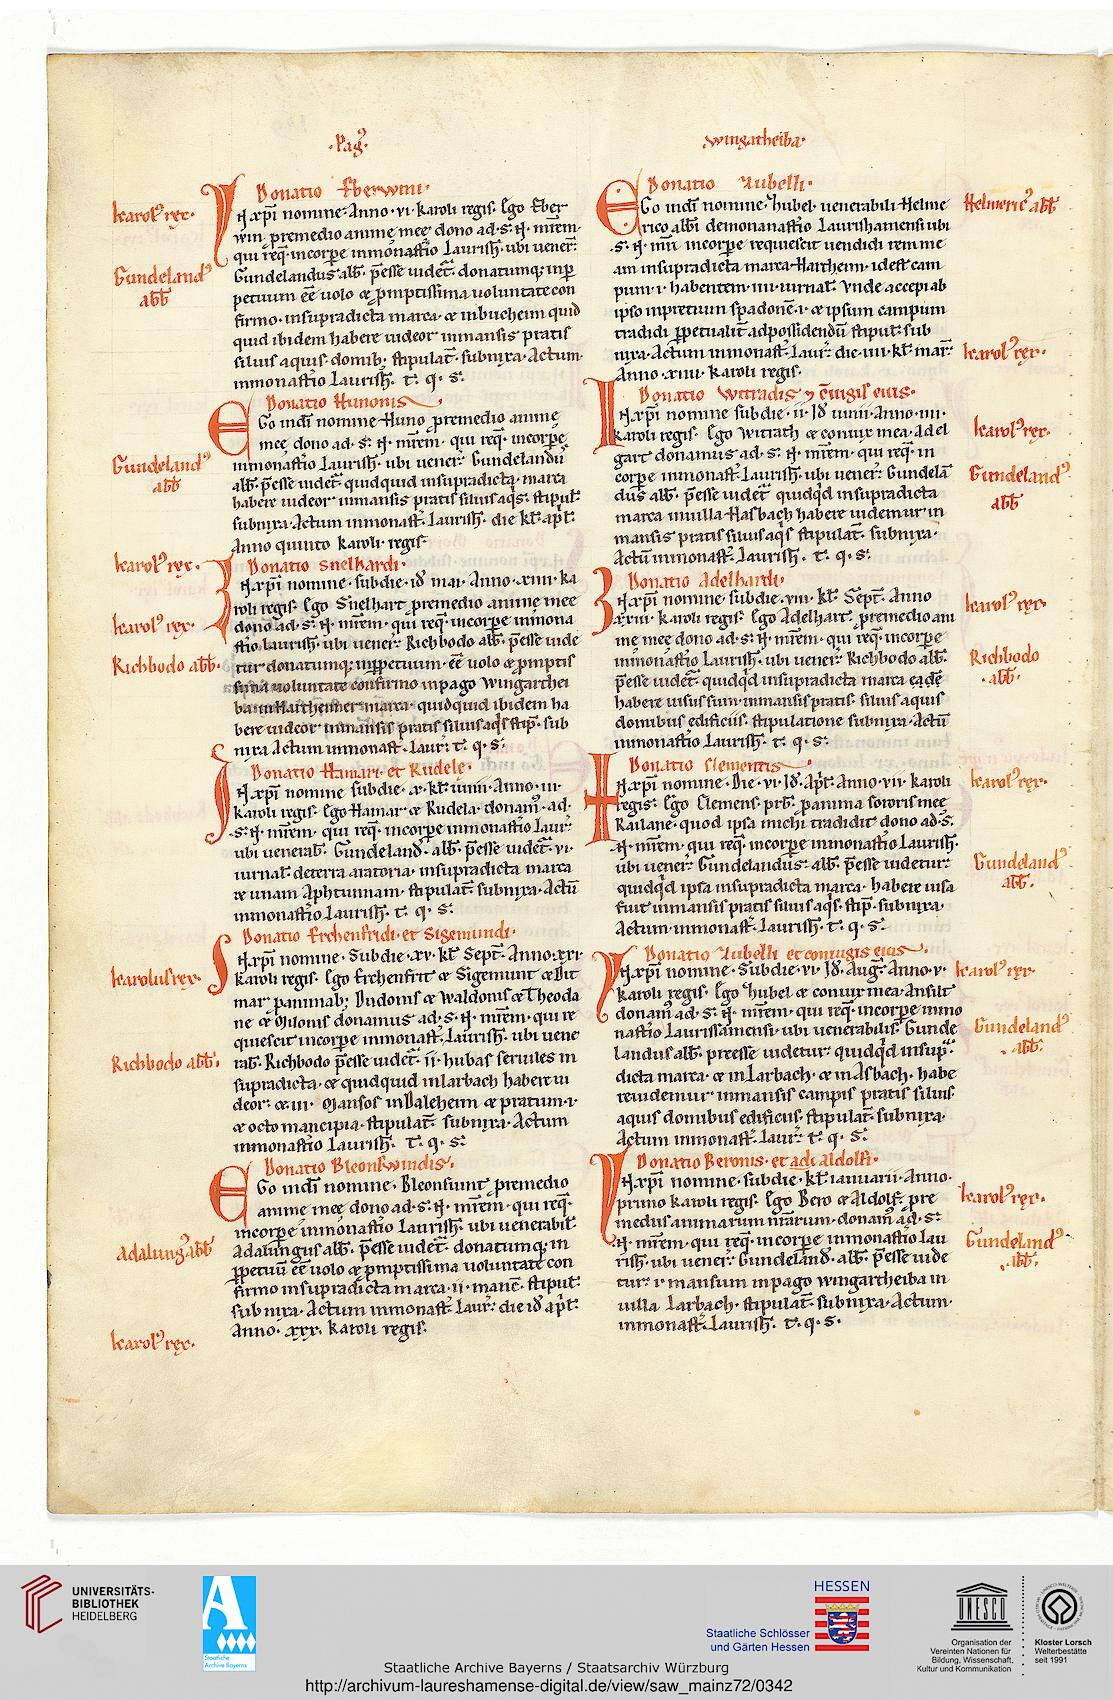 ·Pag᷒·
Donatio Eberwini·
Karol᷒ rex·
IN xp̄i nomine· Anno · vi · karoli regis· Ego Eber
win p̱remedio anime mee dono ad · s · N · mr̄em·
qui req̄ incorpe inmonast̄io Laurish̄· ubi uener̄·
Gundeland᷒ abb̄
Gundelandus abb̄· p̄esse uidet̄· donatumq; inp̱
petuum ee̅ uolo & p̱mptissima uoluntate con
firmo· insupradicta marca· & inbucheim quid
quid ibidem habere uideor inmansis pratis
siluis aquis· domib; stipulat̄· subnixa· Actum·
inmonast̄io Laurish̄· t· q· s·
Donatio Hunonis
EGo indī nomine Huno p̱remedio anime
mee dono ad · s · N · mr̄em· qui req̄ incorpe
Gundeland᷒ abb̄
inmonast̄io Laurish̄· ubi uener̄ Gundelandū
abb̄· p̄esse uidet̄ quidquid insupradicta marca
habere uideor inmansis pratis siluis aq̄s· stipul̄·
subnixa· Actum inmonast̄· Laurish̄· die kl̄· apl̄·
Anno quinto karoli regis·
Karol᷒ rex·
Donatio Snelhardi·
IN xp̄i nomine· subdie · id̄ mai· Anno · xiiii · ka
roli regis· Ego Snelhart p̱remedio anime mee
Karol᷒ rex·
dono ad · s · N · mr̄em· qui req̄ incorpe inmona
st̄io Laurish̄· ubi uener̄ Richbodo abb̄· p̄esse uide
Richbodo abb̄·
tur donatumq; inp̱petuum · ee̅ uolo & p̱mptis
sima uoluntate confirmo inpago Wingarthei
ba in Hartheimer marca· quidquid ibidem ha
bere uideor inmansis pratis siluis aq̄s stip̄· sub
nixa Actum inmonast̄· Laur̄· t· q· s·
Donatio Hamari· et Rudele·
IN xp̄i nomine subdie · x · kl̄ iunii Anno · iii·
karoli regis· Ego Hamar & Rudela· donam᷒· ad·
· s · N · mr̄em· qui req̄ incorpe inmonast̄io Laur̄·
ubi uenerab̄· Gundeland· abb̄· p̄esse uidet̄· vi·
iurnal̄· deterra aratoria· insupradicta marca
& unam Aphtunnam· stipulat̄· subnixa· Actū
inmonast̄io Laurish̄· t· q· s·
Donatio Erchenfridi· et Sigemundi·
IN xp̄i nomine· Subdie · xv · kl̄ Sept̄· Anno · xxi·
Karolus rex·
karoli regis· Ego Erchenfrit & Sigemunt & Dit
mar· p̱animab; Dudonis & Waldonis & Theoda
ne & Milonis donamus ad · s · N · mr̄em· qui re
quiescit incorpe inmonast̄· Laurish̄· ubi uene
Richbodo abb̄·
rab̄· Richbodo p̄esse uidet̄· ii· hubas seruiles in
supradicta· & quidquid inlarbach habere ui
deor· & · iii · Mansos inDaleheim & pratum · i·
& octo mancipia· stipulat̄· subnixa· Actum
inmonast̄io Laurish̄· t· q· s·
Donatio Bleonswindis·
EGo indī nomine· Bleonsuint p̱remedio
anime mee dono ad · s · N · mr̄em· qui req̄·
incorpe inmonast̄io Laurish̄· ubi uenerabil̄
Adalung᷒ abb̄
Adalungus abb̄· p̄esse uidet̄· donatumq; in
p̱petuū ee̅ uolo & p̱mptissima uoluntate con
firmo insupradicta marca · ii · manc̄· stipul̄·
subnixa· Actum inmonast̄· Laur̄· die id̄ apl̄·
Anno · xxx · karoli regis·
Karol᷒ rex·
Wingatheiba·
Donatio Hubelli·
EGo indī nomine· Hubel· uenerabili Helme
Helmeric᷒ abb̄
rico abb̄i demonanast̄io Laurishamensi ubi
· s · N · mr̄ incorpe requiescit uendidi rem me
am insupradicta marca Hartheim· idest cam
pum · i · habentem · iiii · iurnal̄· Vnde accepi ab
ipso inpretium spadonē · i · & ipsum campum
tradidi p̱petualit̄ adpossidendū stipul̄· sub
nixa· Actum inmonast̄· Laur̄· die · iiii · kl̄· mar̄·
Karol᷒ rex·
Anno · xiiii · karoli regis·
Donatio Witradis ⁊ c̄iugis eius·
IN xp̄i nomine subdie · ii · Id̄ iunii· Anno · iiii·
Karol᷒ rex·
karoli regis· Ego Witrath & coniux mea· Adel
gart donamus ad · s · N · mr̄em· qui req̄· in
Gundeland᷒ abb̄
corpe inmonast̄· Laurish̄· ubi uener̄· Gundelā
dus abb̄· p̄esse uidet̄ quidq̇d insupradicta
marca inuilla Hasbach habere uidemur in
mansis· pratis siluis aq̄s stipulat̄· subnixa·
Actū inmonast̄· Laurish̄· t· q· s·
Donatio Adelhardi·
IN xp̄i nomine· subdie · viii · kl̄· Sept̄· Anno
Karol᷒ rex·
xxiii · karoli regis· Ego Adelhart· p̱remedio ani
me mee dono ad · s · N · mr̄em· qui req̄ incorpe
Richbodo · abb̄·
inmonast̄io Laurish̄· ubi uener̄· Richbodo abb̄·
p̄esse uidet̄· quidq̇d insupradicta marca eadē
habere uisus sum inmansis pratis· siluis aquis
domibus edificiis· stipulatione subnixa· Actū
inmonast̄io Laurish̄· t· q· s·
Donatio Clementis
IN xp̄i nomine· Die · vi · Id̄· Apl̄· Anno · vii · karoli
Karol᷒ rex·
regis· Ego Clemens· prb̄· p̱anima sororis mee
Railane· quod ipsa michi tradidit dono ad · s·
· N · mr̄em· qui req̄· incorpe inmonast̄io Laurish̄·
Gundeland᷒ abb̄·
ubi uener̄· Gundelandus· abb̄· p̄esse uidetur·
quidq̇d ipsa insupradicta marca· habere uisa
fuit inmansis pratis siluis aq̄s· stip̄· subnixa·
Actum inmonast̄· Laurish̄· t· q· s·
Donatio Hubelli et coniugis eius·
IN xp̄i nomine· Subdie · vi · Id̄· Aug̅· Anno · v·
Karol᷒ rex·
karoli regis· Ego Hubel & coniux mea· Ansilt
donam᷒ ad · s · N · mr̄em· qui req̄· incorpe inmo
Gundeland᷒ · abb̄·
nast̄io Laurissamensi· ubi uenerabilis Gunde
landus abb̄· preesse uidetur· quidq̇d insup̱·
dicta marca· & in Larbach· & in Asbach· habe
reuidemur inmansis campis pratis siluis·
aquis domibus edificiis· stipulat̄· subnixa·
Actum inmonast̄· Laur̄· t· q· s·
Donatio Beronis· et adi aldolfi·
IN xp̄i nomine· subdie· kl̄ ianuarii· Anno·
Karol᷒ rex·
primo karoli regis· Ego Bero & Aldolf· p̱re
medus animarum nr̄arum· donam᷒ ad · s·
Gundeland᷒ · abb̄·
· N · mr̄em· qui req̄· incorpe inmonast̄io Lau
rish̄· ubi uener̄· Gundeland· abb̄· p̄esse uide
tur· i · mansum inpago Wingartheiba in
uilla Larbach· stipulat̄· subnixa· Actum·
inmonast̄· Laurish̄· t· q· s·
UNIVERSITÄTS-
BIBLIOTHEK
HEIDELBERG
Staatliche
Archive Bayerns
HESSEN
Staatliche Schlösser
und Gärten Hessen
UNESCO
Organisation der
Vereinten Nationen für
Bildung, Wissenschaft,
Kultur und Kommunikation
Kloster Lorsch
Welterbestätte
seit 1991
Staatliche Archive Bayerns / Staatsarchiv Würzburg
http://archivum-laureshamense-digital.de/view/saw_mainz72/0342